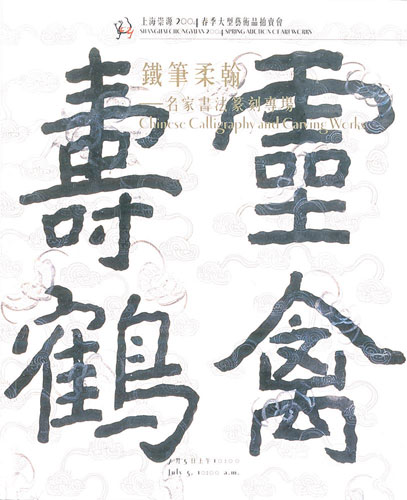 上海崇源2004春季大型藝術品拍賣會
SHANGHAI CHONGYUAN 2004 SPRING AUCTION OF ARTWORKS
鐵筆柔翰
——名家書法篆刻專場
Chinese Calligraphy and Carving Works
靈禽
壽鶴
7月5日上午10:00
July 5, 10:00 a.m.